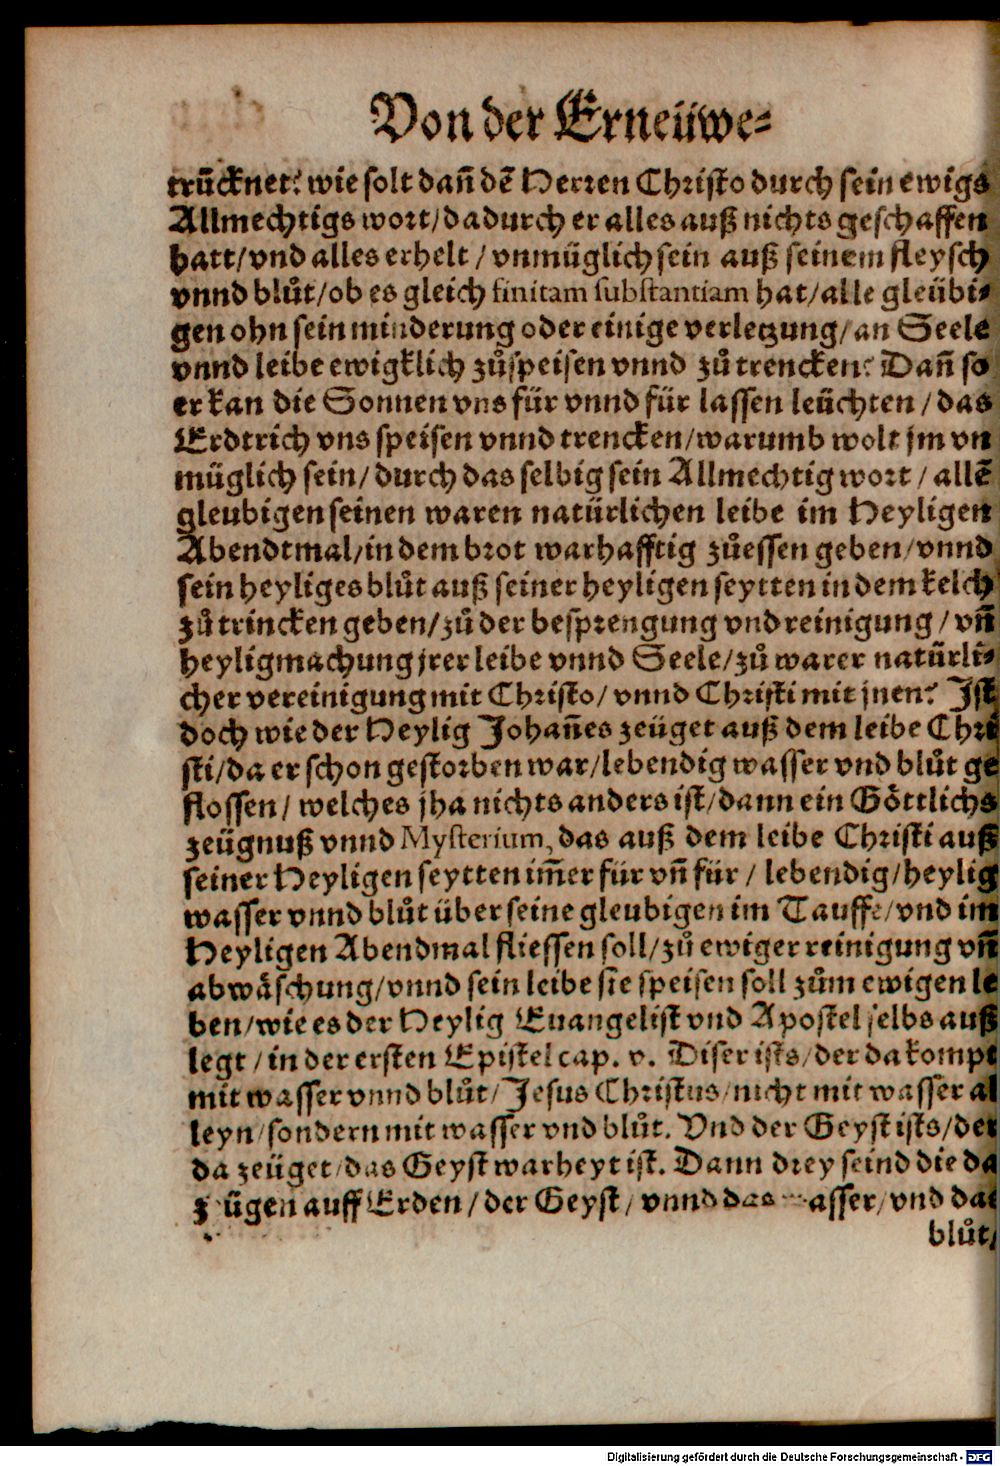 Von der Erneüwe⸗
trücknet? wie solt dañ dẽ Herren Christo durch sein ewigs
Allmechtigs wort/dadurch er alles auß nichts geschaffen
hatt/vnd alles erhelt / vnmüglich sein auß seinem fleysch
vnnd blůt/ob es gleich finitam substantiam hat/alle gleübi⸗
gen ohn sein minderung oder einige verletzung/an Seele
vnnd leibe ewigklich zůspeisen vnnd zů trencken? Dañ so
er kan die Sonnen vns für vnnd für lassen leüchten / das
Erdtrich vns speisen vnnd trencken/warumb wolt jm vn
müglich sein/ durch das selbig sein Allmechtig wort / allẽ
gleubigen seinen waren natürlichen leibe im Heyligen
Abendtmal/in dem brot warhafftig zůessen geben/vnnd
sein heyliges blůt auß seiner heyligen seytten in dem kelch
zů trincken geben/zů der besprengung vnd reinigung / vñ
heyligmachung jrer leibe vnnd Seele/zů warer natürli⸗
cher vereinigung mit Christo/ vnnd Christi mit jnen? Ist
doch wie der Heylig Johañes zeüget auß dem leibe Chri
sti/da er schon gestorben war/lebendig wasser vnd blůt ge
flossen/ welches jha nichts anders ist/dann ein Göttlichs
zeügnuß vnnd Mysterium, das auß dem leibe Christi auß
seiner Heyligen seytten im̃er für vñ für / lebendig/heylig
wasser vnnd blůt über seine gleubigen im Tauffe/vnd im
Heyligen Abendmal fliessen soll/zů ewiger reinigung vñ
abwäschung/vnnd sein leibe sie speisen soll zům ewigen le
ben/wie es der Heylig Euangelist vnd Apostel selbs auß
legt / in der ersten Epistel cap. v. Diser ists/der da kompt
mit wasser vnnd blůt/ Jesus Christus/nicht mit wasser al
leyn/sondern mit wasser vnd blůt. Vnd der Geyst ists/der
da zeüget/das Geyst warheyt ist. Dann drey seind die da
zügen auff Erden / der Geyst / vnnd das wasser/vnd das
blůt/
Digitalisierung gefördert durch die Deutsche Forschungsgemeinschaft - DFG